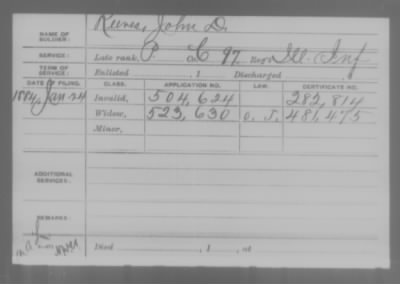 NAME OF SOLDIER: Reeves, John D.
SERVICE: Late rank, P. Co. C 97 Reg't Ill. Inf
TERM OF SERVICE: Enlisted , 1 Discharged , 1
DATE OF FILING. CLASS. APPLICATION NO. LAW. CERTIFICATE NO.
1884, Jan 24 Invalid, 504,624 282,814
Widow, 523,630 O. J. 481,475
Minor,
ADDITIONAL SERVICES:
REMARKS:
Died , 1 , at